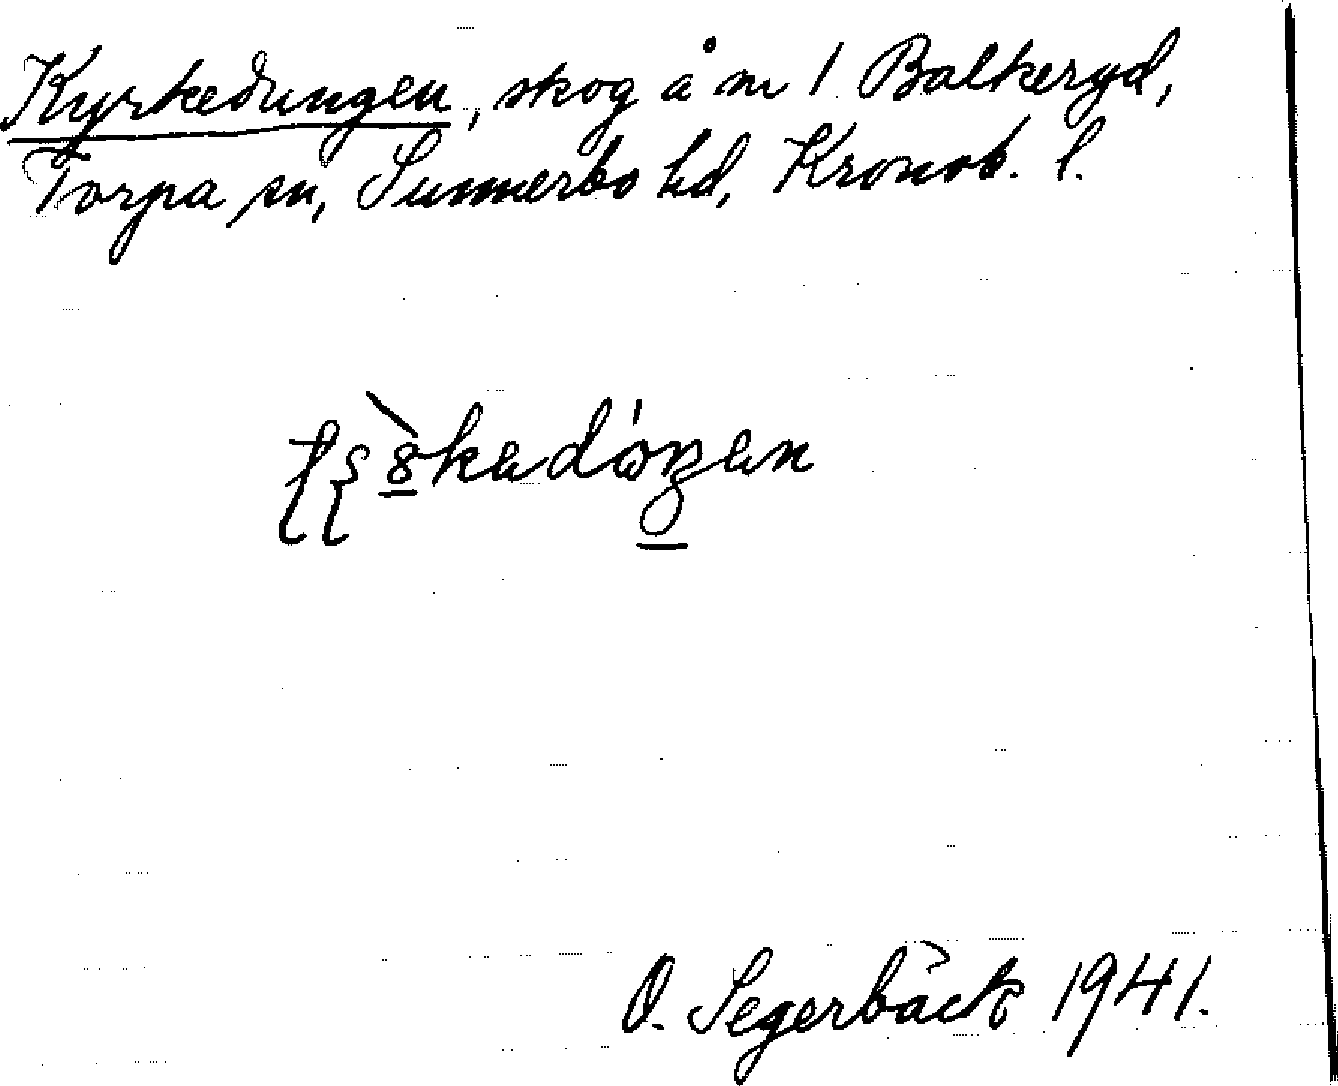 Kyrkedungen, skog å m 1 Balkeryd,
Torpa sn, Sunnerbo hd, Kronob. l.
O. Segerbäck 1941.